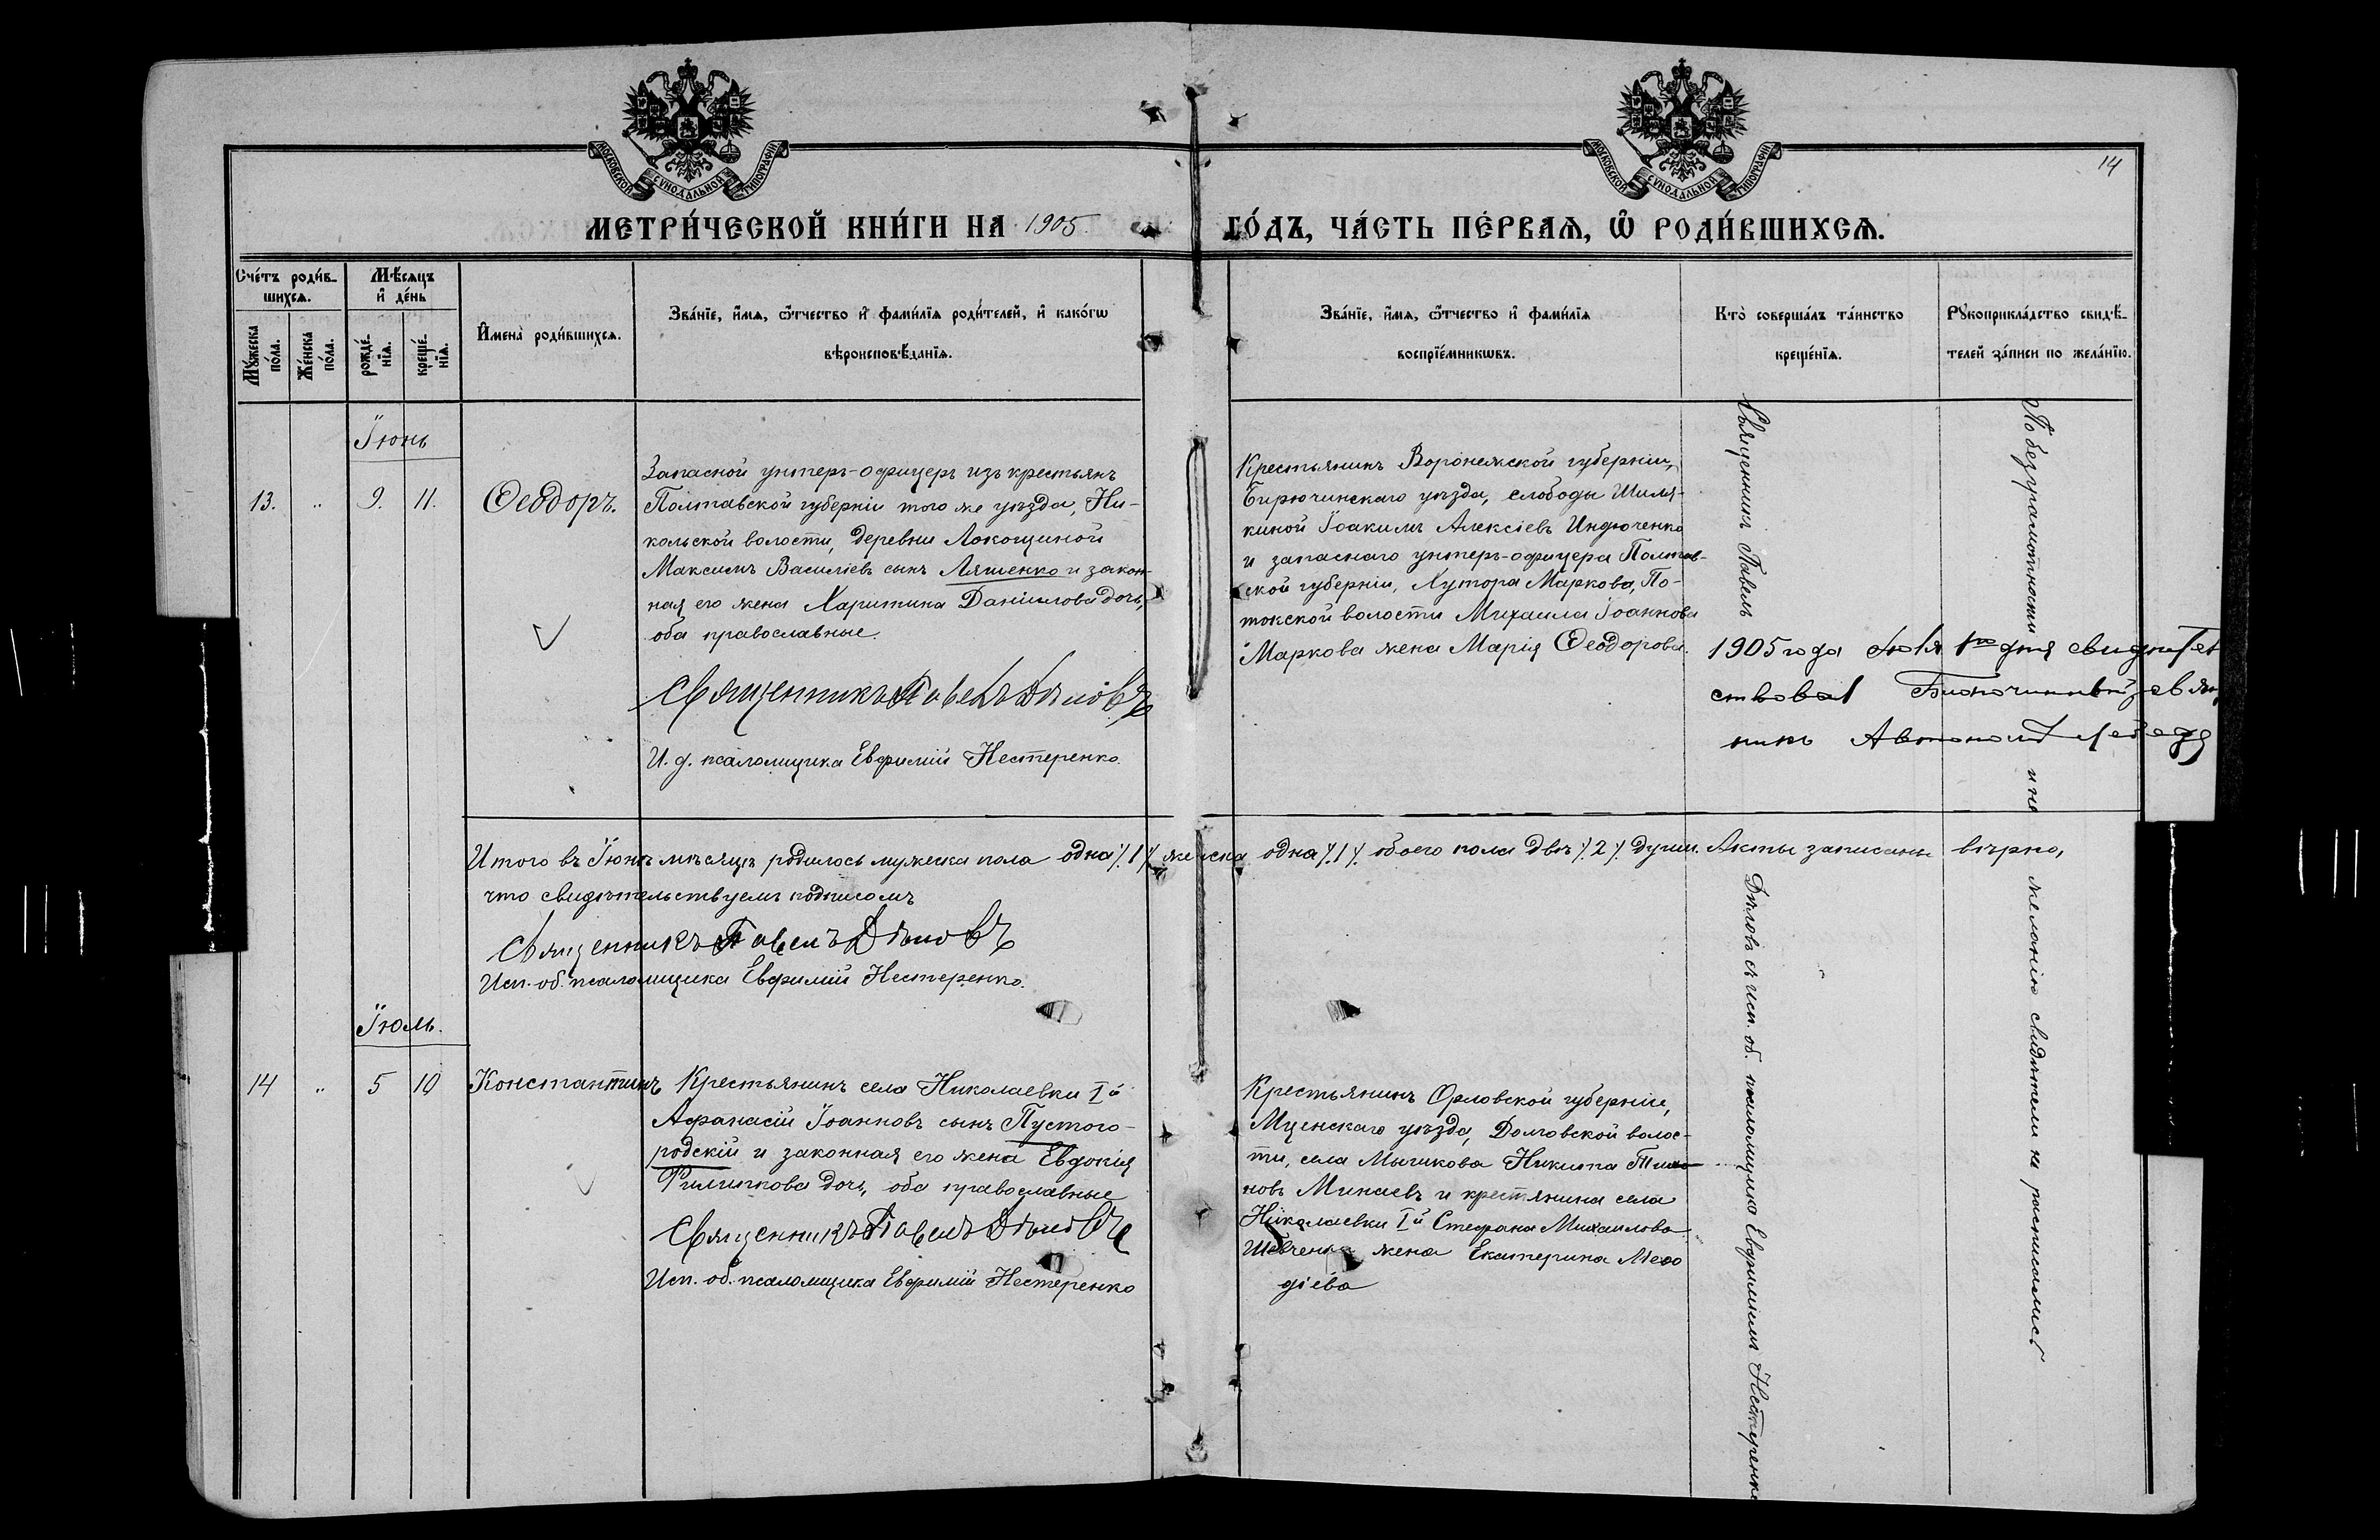 МОСКОВСКОЙ СѴНОДАЛЬНОЙ ТИПОГРАФІИ
МОСКОВСКОЙ СѴНОДАЛЬНОЙ ТИПОГРАФІИ
14
МЕТРИ́ЧЕСКОЙ КНИ́ГИ НА 1905
ГО́ДЪ, ЧА́СТЬ ПЕ́РВАѦ, Ѽ РОДИ́ВШИХСѦ.
Сче́тъ роди́в-
шихсѧ.
Мѣ́сѧцъ
и҆ де́нь
Мꙋ́жеска
по́ла.
Же́нска
по́ла.
рожде́-
нїѧ.
креще́-
нїѧ.
И҆мена̀ роди́вшихсѧ.
Зва́нїе, и҆́мѧ, ѻ҆́тчество и҆ фами́лїѧ роди́телей, и҆ како́гѡ
вѣроисповѣ́данїѧ.
Зва́нїе, и҆́мѧ, ѻ҆́тчество и҆ фами́лїѧ
воспрїе́мникѡвъ.
Кто̀ соверша́лъ та́инство
креще́нїѧ.
Рꙋкоприкла́дство свидѣ́-
телей за́писи по жела́нїю.
Іюнь
13. „ 9. 11. Ѳеодоръ.
Запасной унтеръ-офицеръ изъ крестьянъ
Полтавской губерніи того же уѣзда, Ни-
кольской волости, деревни Локощиной
Максимъ Василіевъ сынъ Ляшенко и закон-
ная его жена Харитина Даніилова дочь,
оба православные.
Священникъ Павелъ Дѣловъ
И. д. псаломщика Евфимій Нестеренко.
Крестьянинъ Воронежской губерніи,
Бирючинскаго уѣзда, слободы Шиля-
киной Іоакимъ Алексіевъ Индюченко
и запаснаго унтеръ-офицера Полтав-
ской губерніи, Хутора Маркова, По-
токской волости Михаила Іоаннова
Маркова жена Марія Ѳеодорова.
1905 года Іюля 1го дня свидѣтель
ствовал Благочинный, священ
никъ Автоном
Итого въ Іюнѣ мѣсяцѣ родилось мужеска пола одна ⁒1⁒ женска одна ⁒1⁒ обоего пола двѣ ⁒2⁒ души. Акты записаны вѣрно,
что свидѣтельствуемъ подписомъ
Священникъ Павелъ Дѣловъ
Исп. об. псаломщика Евфимій Нестеренко.
Іюль.
14 „ 5 10 Константинъ
Крестьянинъ села Николаевки I-й
Афанасій Іоанновъ сынъ Пустого-
родскій и законная его жена Евдокія
Филиппова дочь, оба православные
Священникъ Павелъ Дѣловъ
Исп. об. псаломщика Евфимій Нестеренко
Крестьянинъ Орловской губерніи,
Мценскаго уѣзда, Долговской волос-
ти, села Никита
новъ Минаевъ и крестянина села
Николаевки I-й Стефана Михаилова
Шевченка жена Екатерина Меѳо
діева
Священникъ Павелъ Дѣловъ съ исп. об. псаломщика Евфимимъ Нестеренко
По безграмотности и не желанію свидѣтели не росписались